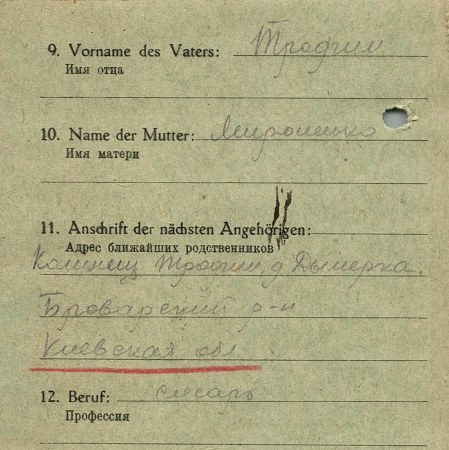 9. Vorname des Vaters: Трофим
Имя отца
10. Name der Mutter: Мирошенко
Имя матери
11. Anschrift der nächsten Angehörigen:
Адрес ближайших родственников
Трофим, д. Дымерка.
Броварский р-н
Киевская обл.
12. Beruf: слесарь
Профессия